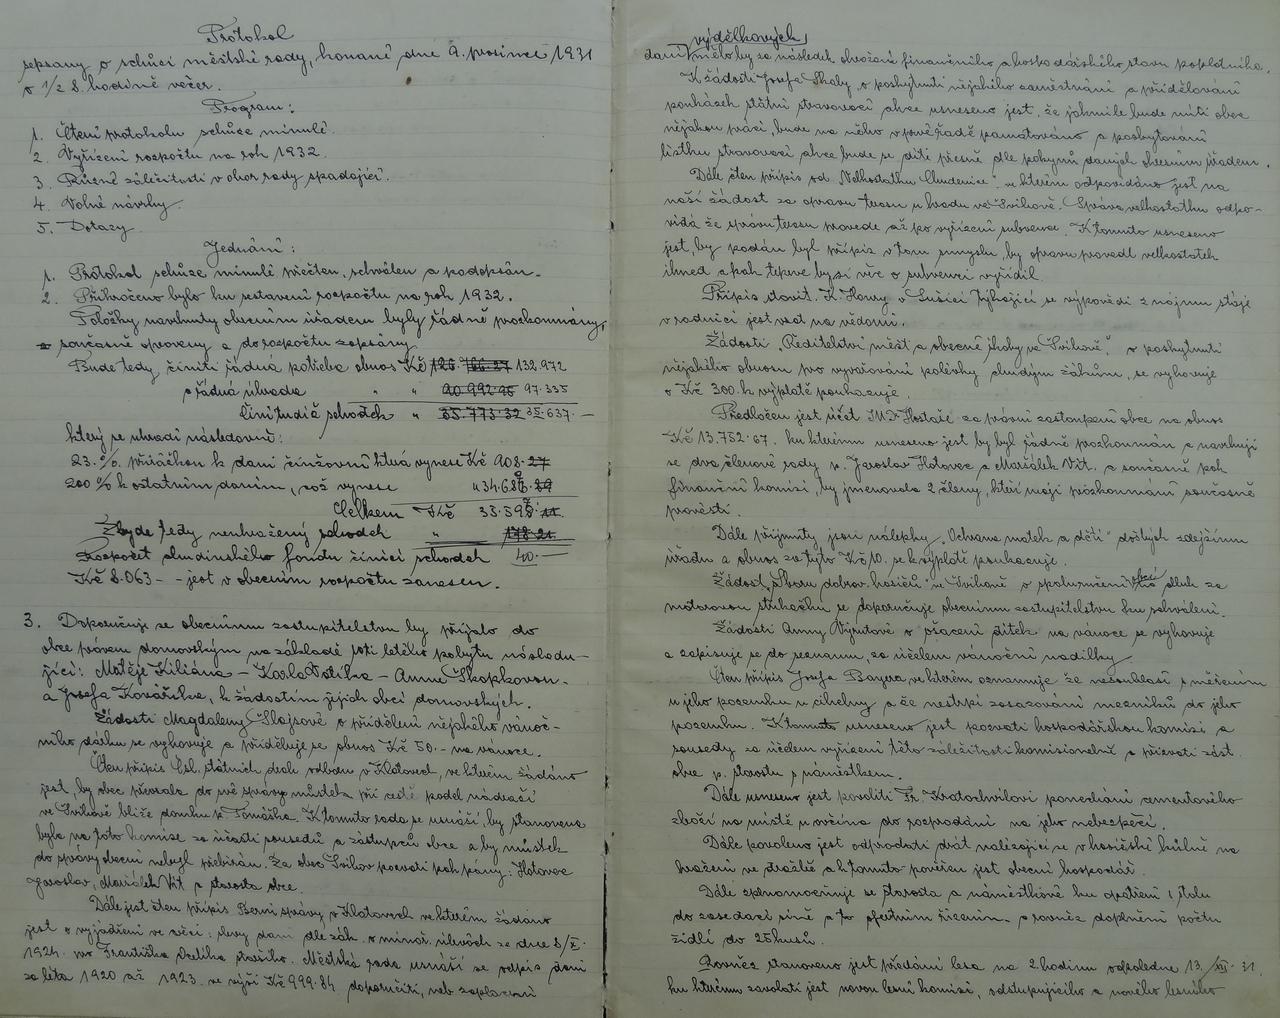 Protokol
sepsaný o schůzi městské rady, konané dne 9. prosince 1931
o 1/2 8. hodině večer.
Program:
1. Čtení protokolu schůze minulé.
2. Vyřízení rozpočtu na rok 1932.
3. Různé záležitosti v obor rady spadající.
4. Volné návrhy.
5. Dotazy.
Jednání:
1. Protokol schůze minulé přečten, schválen a podepsán.
2. Přikročeno bylo ku sestavení rozpočtu na rok 1932.
Položky navrhnuty obecním úřadem byly řádně prozkoumány,
současně opraveny a do rozpočtu zapsány.
Bude tedy činiti řádná potřeba obnos Kč 132.972
a řádná úhrada " " 97.335
činí tudíž schodek " 35.637.—
který se uhradí následovně:
23.% přirážkou k dani činžovní která vynese Kč 908.27
200% k ostatním daním, což vynese " 34.68
Celkem Kč 35.59
Zbyde tedy neuhražený schodek "
Rozpočet chudinského fondu činící schodek 40.—
Kč 8.063 - - jest v obecním rozpočtu zanesen.
3. Doporučuje se obecnímu zastupitelstvu by přijalo do
obce právem domovským na základě 10ti letého pobytu následu-
jící: Matěje Kiliána - Karla - Annu Škopkovou -
a Josefa Kovaříka, k žádostím jejich obcí domovských.
Žádosti Magdaleny Šlajsové o přidělení nějakého vánoč-
ního dárku se vyhovuje a přiděluje se obnos Kč 50.- na vánoce.
Čten přípis Čsl. státních drah odboru v Klatovech, ve kterém žádáno
jest, by obec převzala do své správy můstek při cestě podel nádraží
ve Švihově blíže domku p. Tomáška. K tomuto rada se usnáší, by stanovena
byla na toto komise za účasti sousedů a zástupců obce a by můstek
do správy obecní nebyl přebírán. Za obec Švihov pozvati pak pány: Hotovec
Jaroslav, Maršálek Vít a starosta obce.
Dále jest čten přípis Berní správy v Klatovech ve kterém žádáno
jest o vyjádření ve věci: slevy daní dle zák. o mimoř. úlevách ze dne 8/X.
1924. pro Františka staršího. Městská rada usnáší se odpis daní
za léta 1920 až 1923. ve výši Kč 999.84 doporučiti, neb zaplacení
výdělkových
daní mělo by za následek ohrožení finančního a hospodářského stavu poplatníka.
K žádosti Josefa Skaly, o poskytnutí nějakého zaměstnání a přidělování
poukázek státní stravovací akce usneseno jest, že jakmile bude míti obec
nějakou práci, bude na něho v prvé řadě pamatováno a poskytování
lístku stravovací akce bude se díti přesně dle pokynů daných okresním úřadem.
Dále čten přípis od "Velkostatku Chudenice" ve kterém odpovídáno jest na
naši žádost za opravu terasu u hradu ve Švihově. Správa velkostatku odpo-
vídá že správu terasu provede až po vyřízení subvence. K tomuto usneseno
jest, by podán byl přípis v tom smyslu, by opravu provedl velkostatek
ihned a pak teprve by si věc o subvenci vyřídil.
Přípis stavit. K. Houry v Lučici týkající se výpovědi z nájmu stáje
v radnici jest vzat na vědomí.
Žádosti "Ředitelství měšť a obecné školy ve Švihově", o poskytnutí
nějakého obnosu pro vyvařování polévky chudým žákům, se vyhovuje
a Kč 300.- k výplatě poukazuje.
Předložen jest účet za právní zastoupení obce na obnos
Kč 13.752.67. ku kterému usneseno jest by byl řádně prozkoumán a navrhují
se dva členové rady p. Jaroslav Hotovec a Maršálek Vít, a současně pak
finanční komisi, by jmenovala 2 členy, kteří mají prozkoumání současně
provésti.
Dále přijmuty jsou nálepky "Ochrana matek a dětí" došlých zdejšímu
úřadu a obnos za tyto Kč 10. se k výplatě poukazuje.
Žádost "Sboru dobrov. hasičů" ve Švihově o spoluručení obcí na dluh za
motorovou stříkačku se doporučuje obecnímu zastupitelstvu ku schválení.
Žádosti Anny Výrutové o ošacení dítek na vánoce se vyhovuje
a zapisuje se do seznamu, za účelem vánoční nadílky.
Čten přípis Josefa Bayera ve kterém oznamuje že nesouhlasí s měřením
u jeho pozemku u cihelny a že nestrpí zasazování mezníků do jeho
pozemku. K tomuto usneseno jest pozvati hospodářskou komisi a
sousedy za účelem vyřízení této záležitosti komisionelně a přizvati zást.
obce p. starostu s náměstkem.
Dále usneseno jest povoliti Fr. Kratochvílovi ponechání cementového
zboží na místě u ovčína do rozprodání na jeho nebezpečí.
Dále povoleno jest odprodati drát nalézající se v hasičské kůlně na
hražení ve dražbě a k tomuto pověřen jest obecní hospodář.
Dále zplnomocňuje se starosta a náměstkové ku opatření 1 stolu
do zasedací síně a to ofertním řízením. a rovněž doplnění počtu
židlí do 25 kusů.
Rovněž stanoveno jest předání lesa na 2 hodinu odpoledne 13./XII. 31.
ku kterému zavolati jest novou lesní komisi, odstupujícího a nového lesního